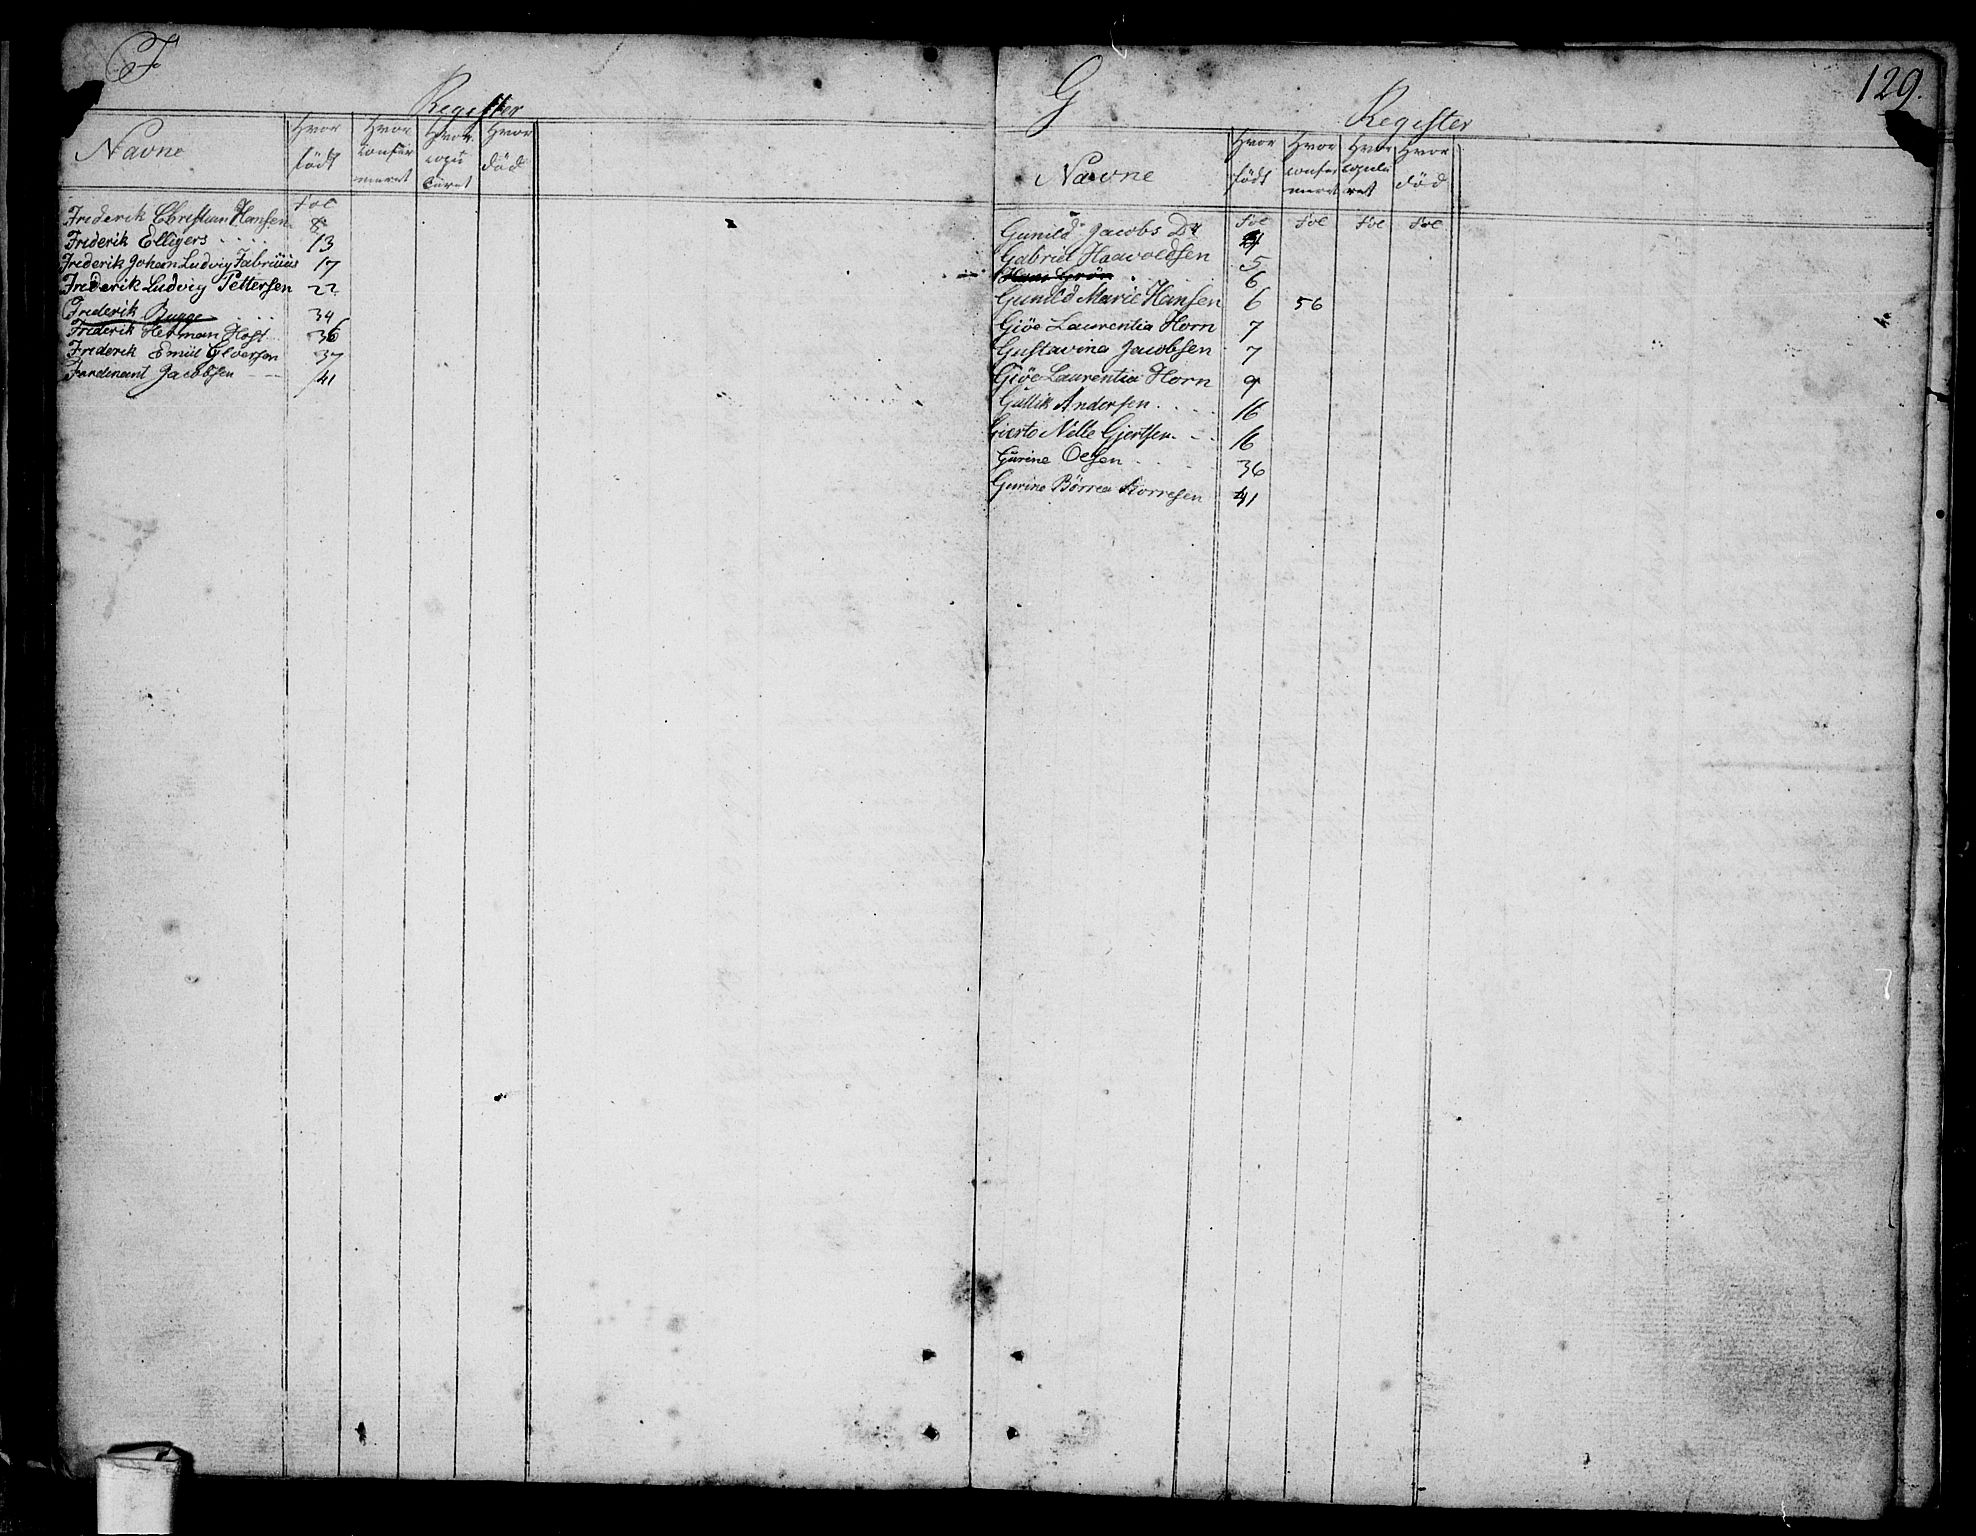 F
Register
Navne Hvor født Hvor confirmeret Hvor copuleret Hvor død
Fol
Frederik Christian Hansen 8
Frederik Elligers 13
Frederik Johan Ludvig Fabriüüs 17
Frederik Ludvig Pettersen 22
Frederik Bugge 34
Frederik Herman Høst 36
Frederik Emiil Elversen 37
Ferdinant Jacobsen 41
129.
G
Register
Navne Hvor født Hvor confirmeret Hvor copuleret Hvor død
Fol Fol Fol Fol
Gunild Jacobs Dr 4
Gabriel Haavoldsen 5
Hans Grøn 6
Gunild Marie Hansen 6 56
Giøe Laurentia Horn 7
Gustavina Jacobsen 7
Giøe Laurentia Horn 9
Gullik Andersen 16
Gjertsen 16
Gurine Olsen 36
Gurine Børrea Torresen 41